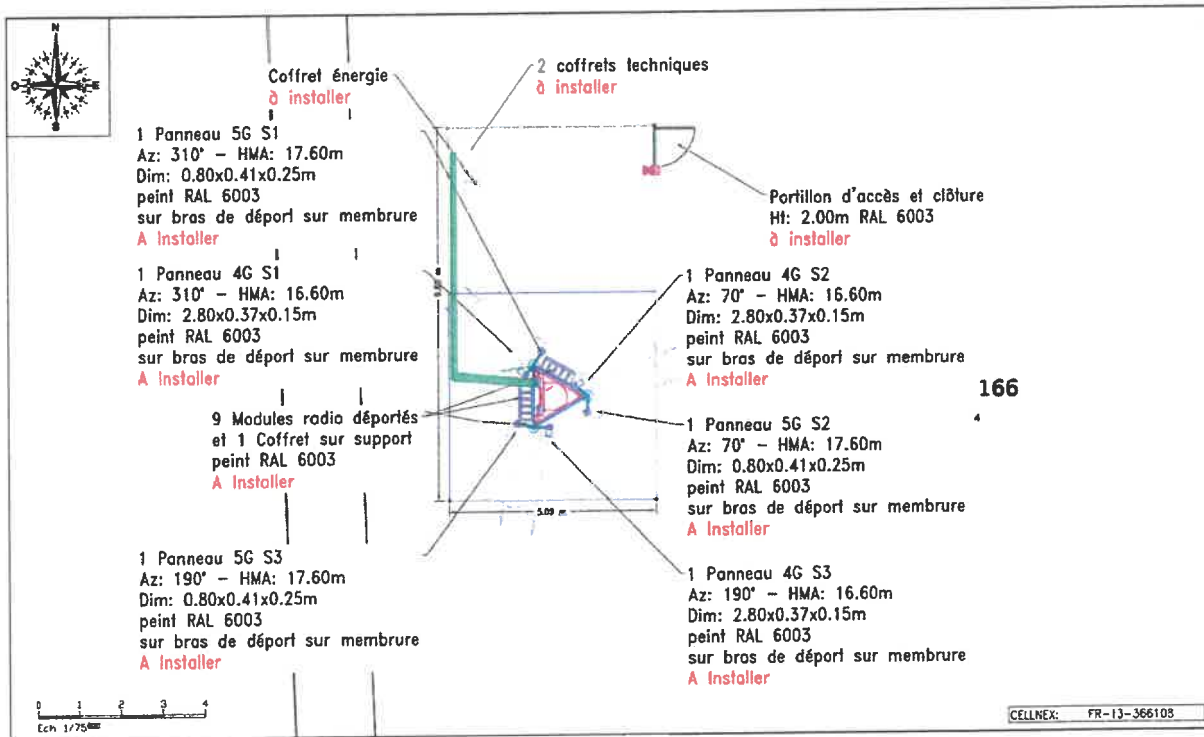 N
O
E
S
Coffret énergie
à installer
2 coffrets techniques
à installer
1 Panneau 5G S1
Az: 310° - HMA: 17.60m
Dim: 0.80x0.41x0.25m
peint RAL 6003
sur bras de déport sur membrure
A Installer
Portillon d'accès et clôture
Ht: 2.00m RAL 6003
à installer
1 Panneau 4G S1
Az: 310° - HMA: 16.60m
Dim: 2.80x0.37x0.15m
peint RAL 6003
sur bras de déport sur membrure
A Installer
1 Panneau 4G S2
Az: 70° - HMA: 16.60m
Dim: 2.80x0.37x0.15m
peint RAL 6003
sur bras de déport sur membrure
A Installer
166
4
9 Modules radio déportés
et 1 Coffret sur support
peint RAL 6003
A Installer
1 Panneau 5G S2
Az: 70° - HMA: 17.60m
Dim: 0.80x0.41x0.25m
peint RAL 6003
sur bras de déport sur membrure
A Installer
5.09 m
1 Panneau 5G S3
Az: 190° - HMA: 17.60m
Dim: 0.80x0.41x0.25m
peint RAL 6003
sur bras de déport sur membrure
A Installer
1 Panneau 4G S3
Az: 190° - HMA: 16.60m
Dim: 2.80x0.37x0.15m
peint RAL 6003
sur bras de déport sur membrure
A Installer
0 1 2 3 4
Ech 1/75
CELLNEX: FR-13-366108